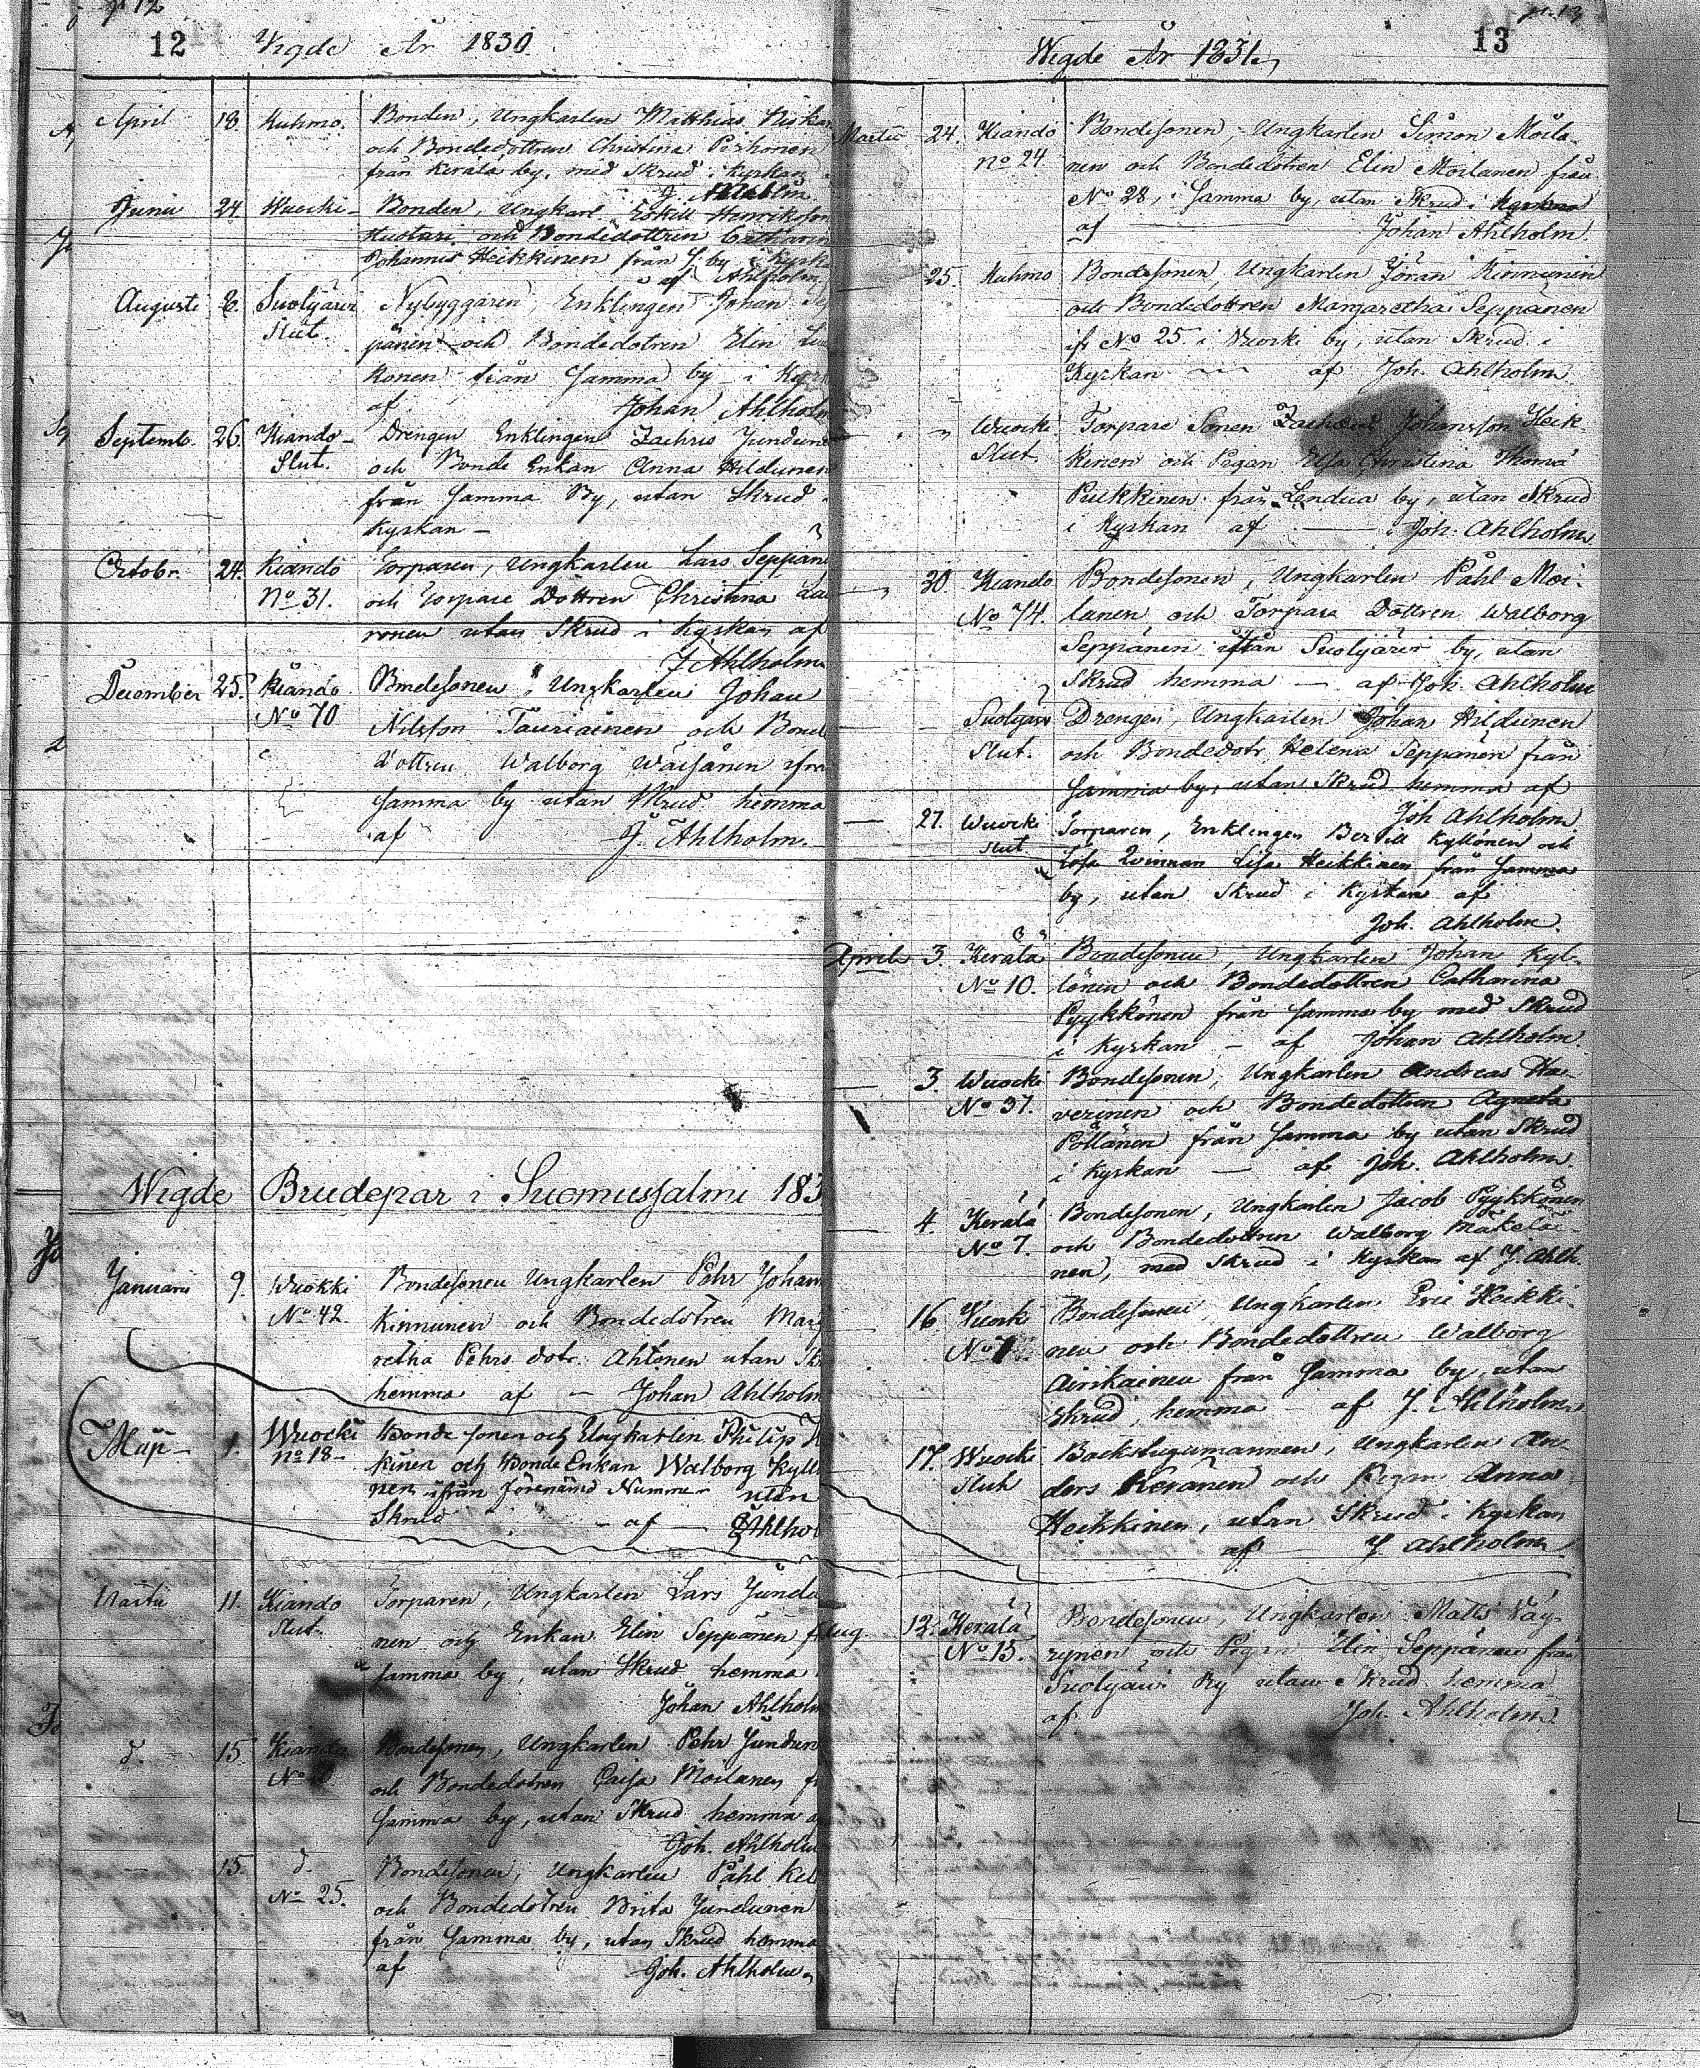 12
Vigde År 1830.
April 18. Kuhmo. Bonden, Ungkarlen Matthias Niska
och Bondedottren Christina Pershonen
från Kerälä by, med Skrud i Kyrkan
J. Ahlholm
Junii 24 Wuocki Bonden, Ungkarl. Eskill Henriksson
Huoturi och Bondedottren Catharin
Johannis Heikkinen från S. by i Kyrka
af Ahlholm
Augusti 8. Suolijärvi Nybyggaren, Enklingen Johan Sep
Slut. pänen och Bondedotren Elin
konen från Samma by i Kyrk
af Johan Ahlholm
Septemb. 26. Kiando Drengen Enklingen Zachris Jundunen
Slut. och Bonde Enkan Anna Hildunen
från Samma By, utan Skrud
Kyrkan
Octobr. 24. Kiando Torparen, Ungkarlen Lars Seppän
No 31. och Torpare Dottren Christina
ronen utan Skrud i Kyrkan af
J Ahlholm
December 25. Kiando Bondesonen, Ungkarlen Johan
No 70 Nilsson Tauriainen och Bond
dottren Walborg Wäisänen ifrån
Samma by utan Skrud hemma
af J. Ahlholm.
Wigde Brudepar i Suomussalmi 183
Januarii 9. Wuokki Bondesonen Ungkarlen Pehr Johan
No 42. Kinnunen och Bondedotren Mar
retha Pehrs dotr. Ahtonen utan Sk
hemma af Johan Ahlholm
1. Wuocki Bonde Sonen och Ungkarlen Philip H
No 18 kinen och Bonde Enkan Walborg Kyllö
nen ifrån förenämd Nummer utan
Skrud af Ahlhol
Martii 11. Kiando Torparen, Ungkarlen Lars Jundu
Slut. nen och Enkan Elin Seppänen f
samma by, utan Skrud hemma
Johan Ahlholm
d. 15 Kiando Bondesonen, Ungkarlen Pehr Jundun
No och Bondedotren Caisa Moilanen f
Samma by, utan Skrud hemma a
Joh. Ahlholm
15. d. Bondesonen, Ungkarlen Påhl Kel
No 25. och Bondedotren Brita Jundunen
från Samma by, utan Skrud hemma
af Joh. Ahlholm
13
Wigde År 1831.
Martii 24. Kiando Bondesonen Ungkarlen Simon Moila-
No 24 nen och Bondedotren Elin Moilanen från
No 28, i Samma by, utan Skrud i Kyrkan
af Johan Ahlholm
25. Kuhmo Bondesonen, Ungkarlen Jöran Kinnunen
och Bondedottren Margaretha Seppänen
ifr No 25 i Wuoki by, utan Skrud i
Kyrkan af Joh. Ahlholm
Wuocki Torpare Sonen Johansson Heik-
Slut. kinen och Pigan Elsa Christina Thoma
Pulkkinen från Lendua by, utan Skrud
i Kyrkan af Joh. Ahlholm
20. Kiando Bondesonen, Ungkarlen Påhl Moi-
No 74. lanen och Torpare Dottren Walborg
Seppänen ifrån Suolijärvi by, utan
Skrud hemma af Joh. Ahlholm
Suolijärvi Drengen, Ungkarlen Johan Hildunen
Slut. och Bondedotr Helena Seppänen från
Samma by, utan Skrud hemma af
Joh Ahlholm
27. Wuocki Torparen, Enklingen Bertill Kyllönen och
Slut. Lösa Qvinnan Lisa Heikkinen från Samma
by, utan Skrud i Kyrkan af
Joh. Ahlholm.
Aprili 3. Kerälä Bondesonen, Ungkarlen Johan Kyl-
No 10. lönen och Bondedottren Catharina
Pyykkönen från Samma by med Skrud
i Kyrkan af Johan Ahlholm.
3. Wuocki Bondesonen, Ungkarlen Andreas Ka-
No 37. verinen och Bondedottren Agneta
Pöllänen från Samma by utan Skrud
i Kyrkan af Joh. Ahlholm
4. Kerälä Bondesonen, Ungkarlen Jacob Pyykkönen
No 7. och Bondedottren Walborg Mäkeläi-
nen, med Skrud i Kyrkan af J. Ahlh.
16 Wuoki Bondesonen, Ungkarlen Eric Heikki-
No nen och Bondedottren Walborg
Airikainen från Samma by, utan
Skrud, hemma af J. Ahlholm
17. Wuocki Backstugumannen, Ungkarlen An-
Slut ders Keränen och Pigan Anna
Heikkinen, utan Skrud i Kyrkan
af J. Ahlholm
Aug 12. Kerälä Bondesonen, Ungkarlen Matts Väy-
No 15. rynen och Pigan Elin Seppänen från
Suolijärvi By utan Skrud hemma
af. Joh. Ahlholm